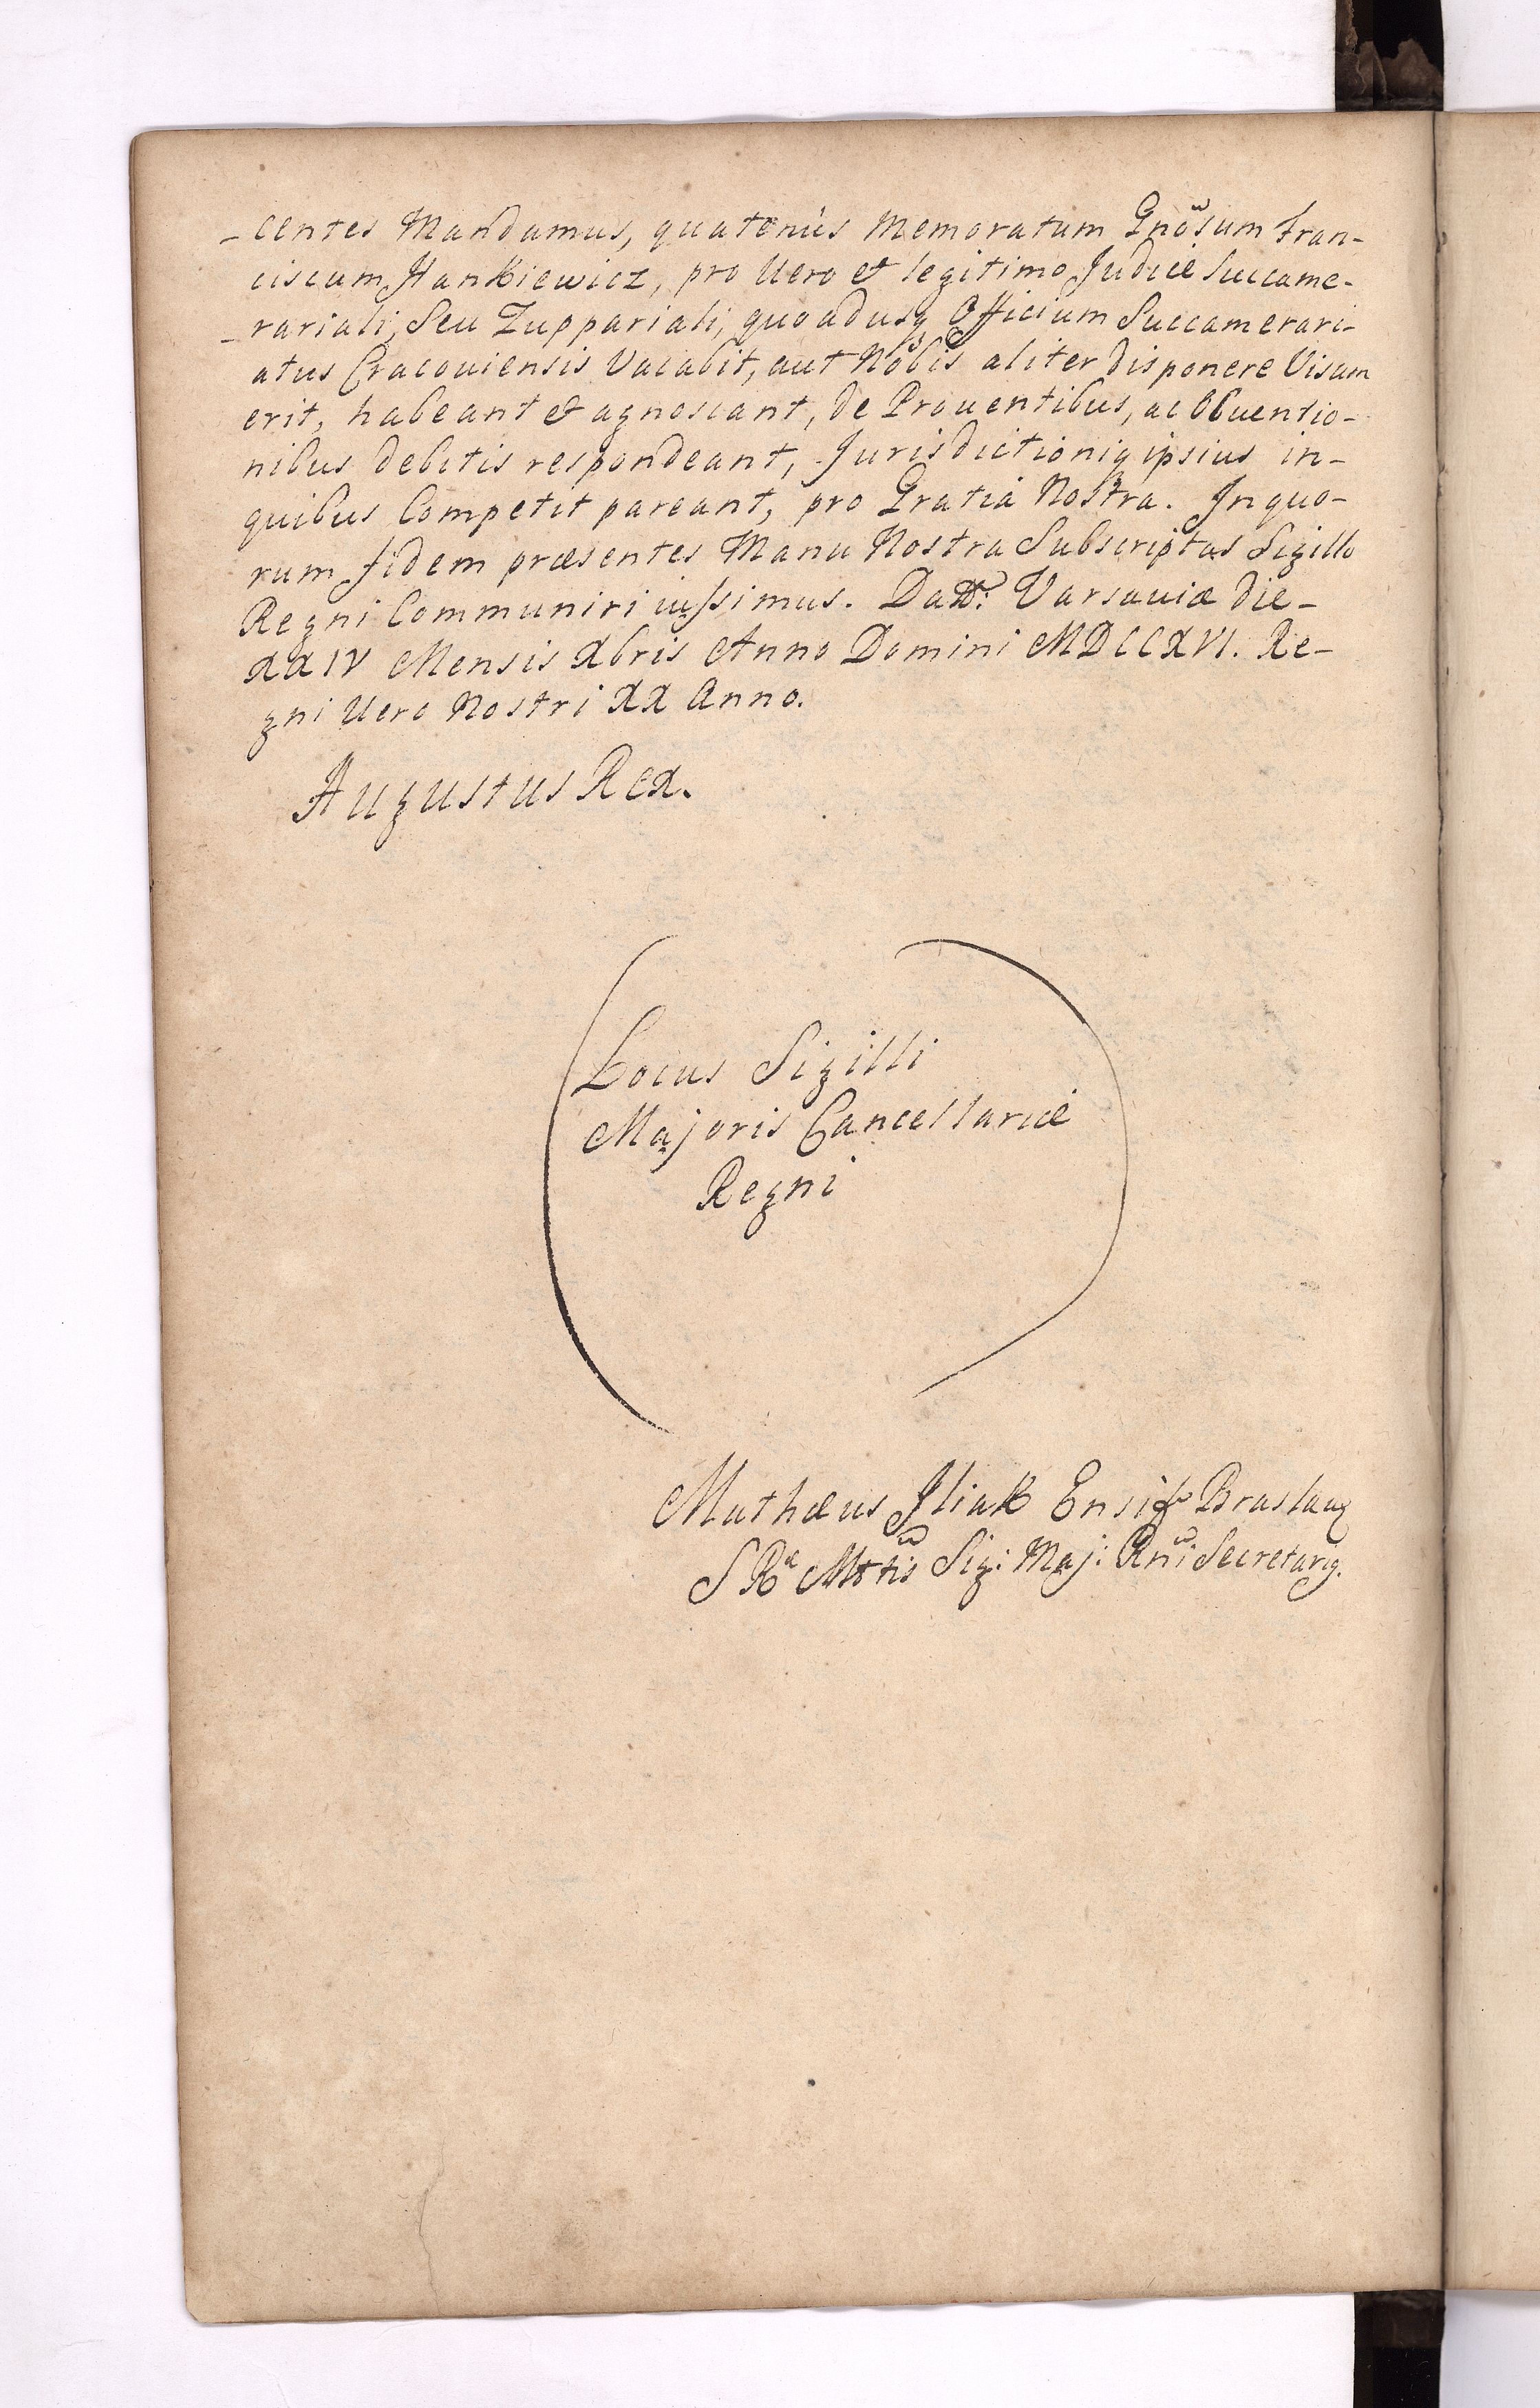 -centes Mandamus, quatenùs Memoratum Gnõsum Fran-
ciscum Hankiewicz, pro Vero et legitimo Judice Succame-
-rariali, Seu Zuppariali, quoadusq Officium Succamerari-
atus Cracoviensis Vacabit, aut Nobis aliter disponere Visam
erit, habeant et agnoscant, de Proventibus, ac Obventio-
nibus debitis respondeant, Jurisdictioniq ipsius in-
quibus Competit pareant, pro Gratiâ Nostra. In quo-
rum fidem præsentes Manu Nostra Subscriptas Sigillo
Regni Communiri iussimus. Datt: Varsaviæ die-
XXIV Mensis Xbris Anno Domini MDCCXVI. Re-
gni Vero Nostri XX Anno.
Augustus Rex.
Locus Sigilli
Majoris Cancellariæ
Regni
Mathæus Iliak Ensif Braslav
S R Mttis Sig: Maj: Rni Secretariq.